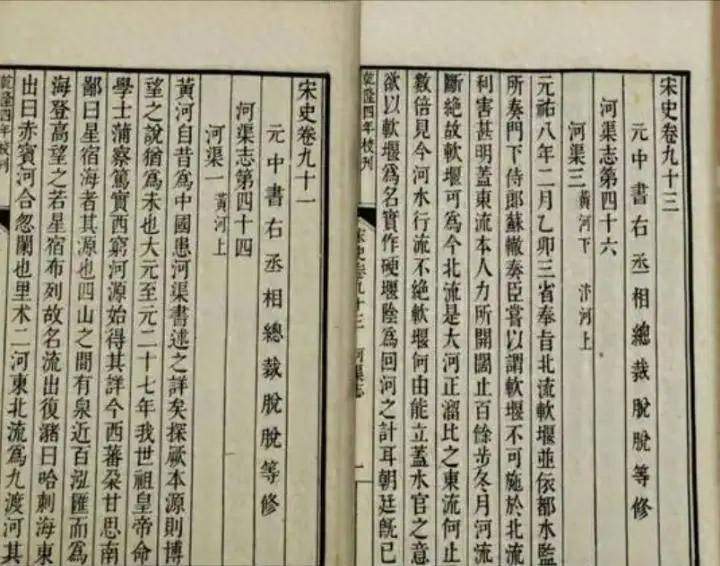 宋史卷九十三
元中書右丞相總裁脫脫等修
河渠志第四十六
河渠三 黃河下 汴河上
元祐八年二月乙卯三省奉旨北流軟堰並依都水監
所奏門下侍郎蘇轍奏臣嘗以謂軟堰不可施於北流
利害甚明蓋東流本人力所開闊止百餘步冬月河流
斷絕故軟堰可爲今北流是大河正溜比之東流何止
數倍見今河水行流不絕軟堰何由能立蓋水官之意
欲以軟堰爲名實作硬堰陰爲回河之計耳朝廷既已
乾隆四年校刊
宋史卷九十三 河渠志 一
宋史卷九十一
元中書右丞相總裁脫脫等修
河渠志第四十四
河渠一 黃河上
黃河自昔爲中國患河渠書述之詳矣探厥本源則博
望之說猶爲未也大元至元二十七年我世祖皇帝命
學士蒲察篤實西窮河源始得其詳今西蕃朶甘思南
鄙曰星宿海者其源也四山之間有泉近百泓匯而爲
海登高望之若星宿布列故名流出復瀦曰哈剌海東
出曰赤賓河合忽闌也里术二河東北流爲九渡河其
乾隆四年校刊